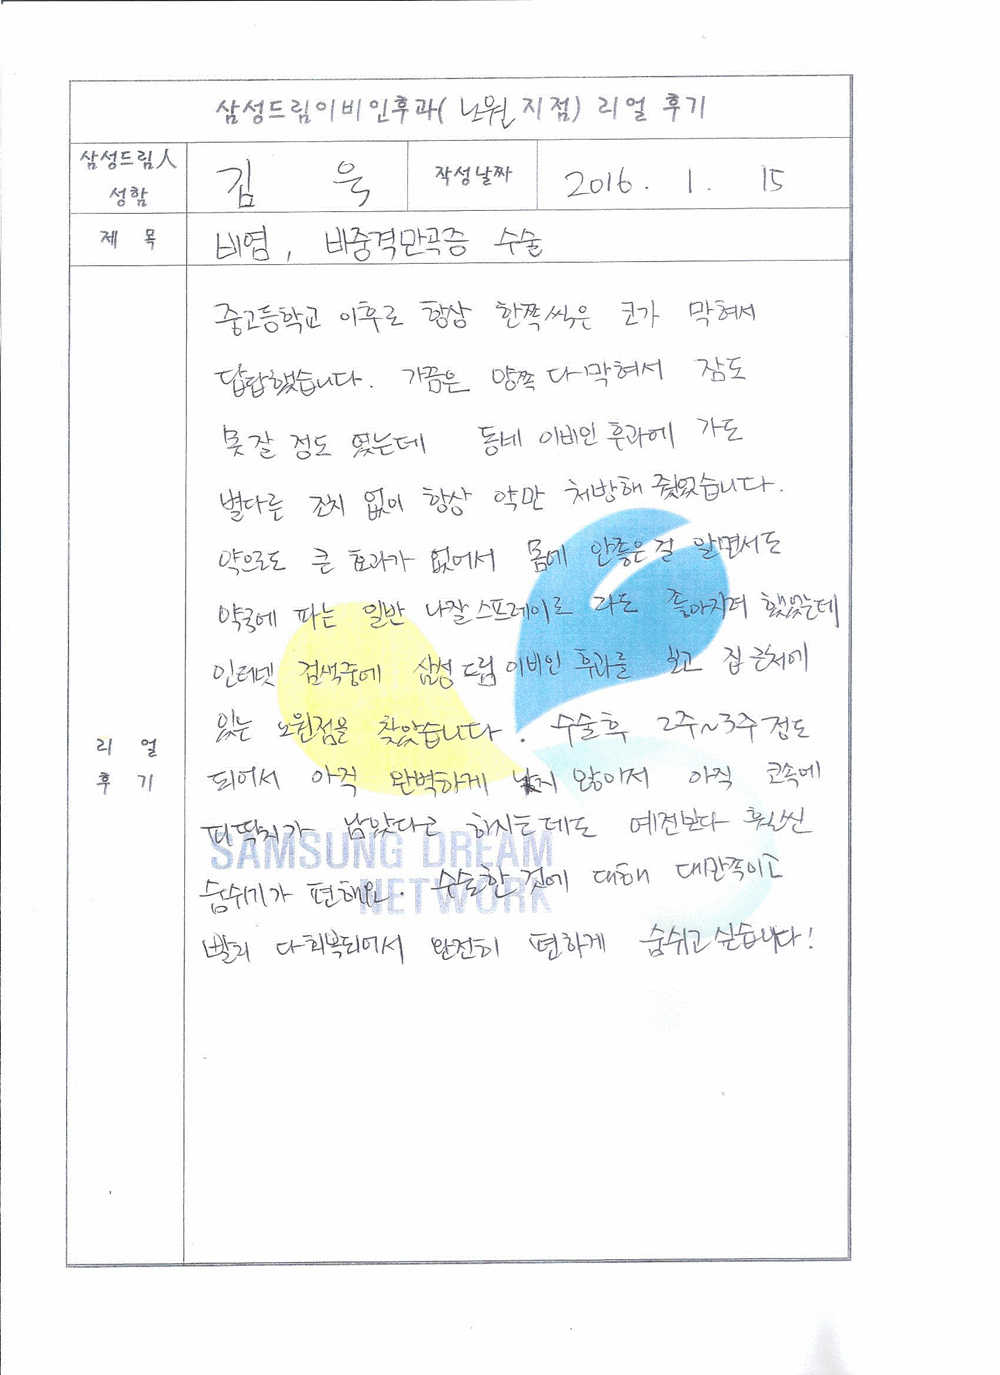 삼성드림이비인후과( 노원 지점) 리얼 후기
삼성드림人 성함
김 욱
작성날짜
2016. 1. 15
제 목
비염, 비중격만곡증 수술
리 얼 후 기
중고등학교 이후로 항상 한쪽씩은 코가 막혀서
답답했습니다. 가끔은 양쪽 다 막혀서 잠도
못잘 정도 였는데 동네 이비인후과에 가도
별다른 조치 없이 항상 약만 처방해 줬었습니다.
약으로도 큰 효과가 없어서 몸에 안좋은걸 알면서도
약국에 파는 일반 나잘스프레이로 라도 좋아지려 했었는데
인터넷 검색중에 삼성드림이비인후과를 보고 집 근처에
있는 노원점을 찾았습니다. 수술후 2주~3주정도
되어서 아직 완벽하게 낫지 않아서 아직 코속에
피딱지가 남았다고 하시는데도 예전보다 훨씬
숨쉬기가 편해요. 수술한 것에 대해 대만족이고
빨리 다 회복되어서 완전히 편하게 숨쉬고 싶습니다!
SAMSUNG DREAM
NETWORK